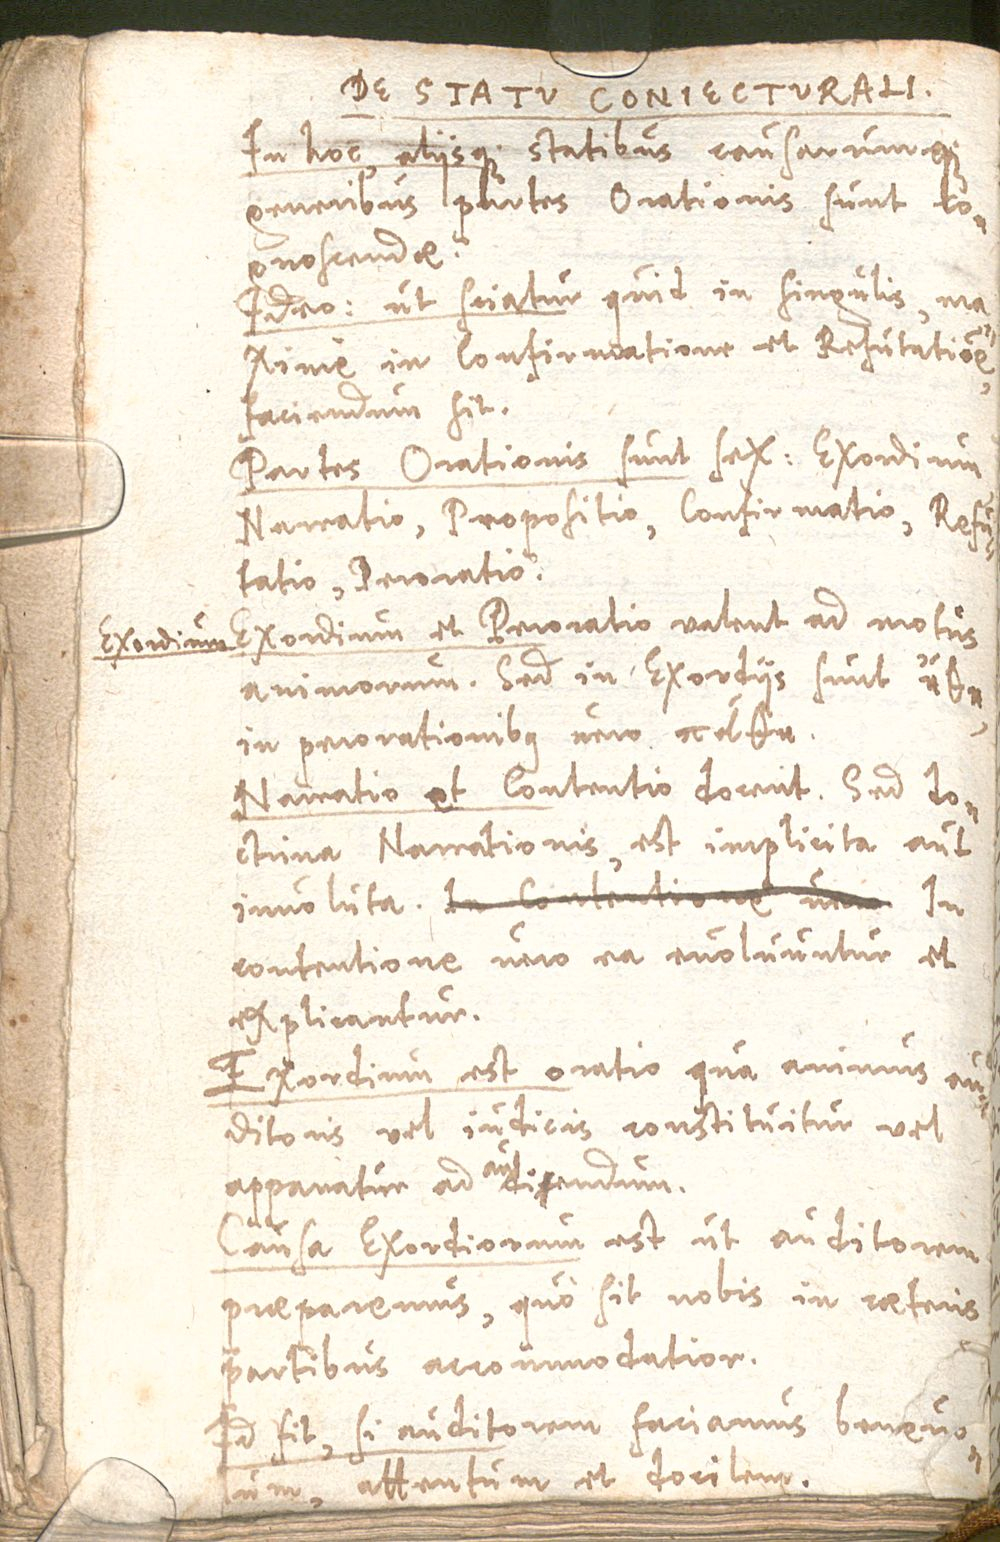 DE STATU CONIECTURALI.
In hoc, alijsq; statibus causarumq;
generibus partes Orationis sunt co-
gnoscendæ.
Ideo: ut sciatur quid in singulis, ma-
xime in Confirmatione et Refutatiõe,
faciendum sit.
Partes Orationis sunt sex: Exordium
Narratio, Propositio, Confirmatio, Refu-
tatio, Peroratio.
Exordium Exordium et Peroratio valent ad motus
animorum. Sed in Exordijs sunt ἤθη,
in perorationibq vero πάθη.
Narratio et Contentio docent. Sed do-
ctrina Narrationis, est implicita aut
involuta. In Contentione vero In
contentione vero ea evolvuntur et
explicantur.
Exordium est oratio qua animus au-
ditoris vel iudicis constituitur vel
apparatur ad audiendum.
Causa Exordiorum est ut auditorem
præparemus, quò sit nobis in cæteris
partibus accommodatior.
Id fit, si auditorem faciamus benevo-
lum, attentum et docilem.